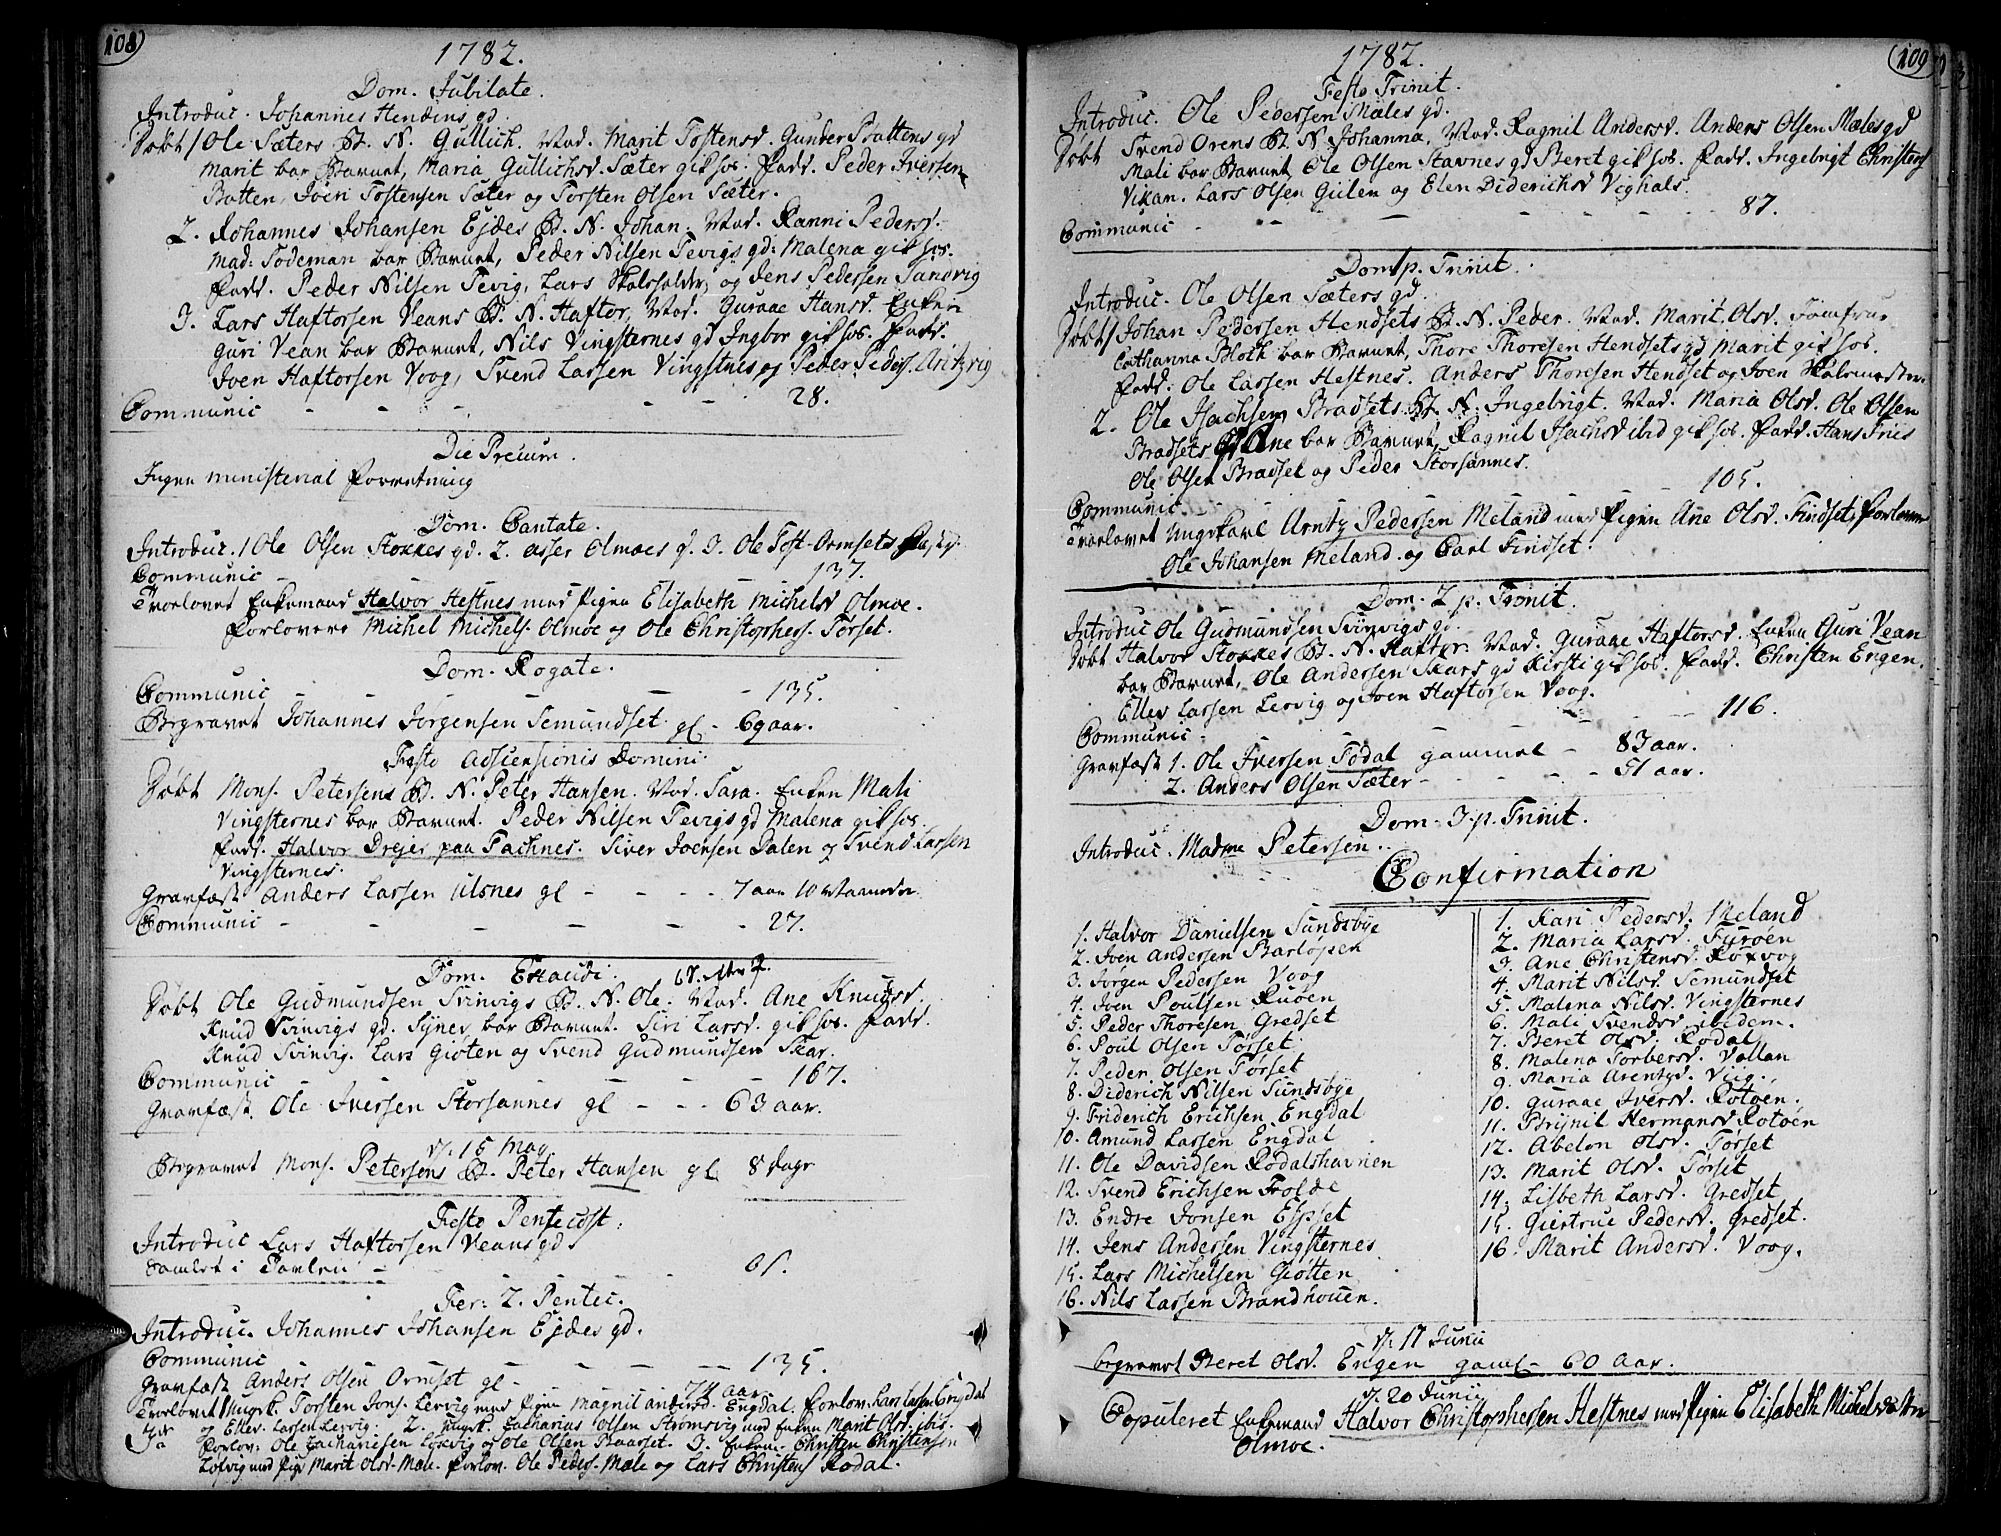 108
1782.
Dom. Jubilate.
Introduc. Johannes Hendins gd.
Døbt 1 Ole Sæters B. N. Gullich. Mod. Marit Tostensd. Gunder Battens gd
Marit bar Barnet, Maria Gullichsd. Sæter gik hos. Fadd. Peder Iversen
Batten, Joen Tostensen Sæter og Torsten Olsen Sæter.
2. Johannes Johansen Ejdes B. N. Johan. Mod. Ranni Pedersd.
Mad: Todeman bar Barnet, Peder Nilsen Tevigs gd: Malena gik hos.
Fadd. Peder Nilsen Tevig, Lars Skalsholder, og Jens Pedersen Sandvig
3. Lars Haftorsen Veans B. N. Haftor, Mod. Guraae Hansd. Enken
Guri Vean bar Barnet, Nils Vingsternes gd Ingbor gik hos. Fadd.
Joen Haftorsen Voog, Svend Larsen Vingstnes, og Peder Peders.
Communic - - - - - 28.
Die Precum.
Ingen ministerial Forretning
Dom. Cantate.
Introduc. 1 Ole Olsen Stokkes gd. 2. Asser Olmoes g. 3. Ole Tost. Ormsets
Communic - 137.
Trorlovet Enkemand Halvor Hestnes med Pigen Elisabeth Michelsd Olmoe.
Forlovere Michel Michels. Olmoe og Ole Christophers. Torset.
Dom. Rogate.
Communic - - - - - 135.
Begravet Johannes Jørgensen Semundset gl - 69 aar.
Festo Adscensionis Domini.
Døbt Mons. Petersens B. N. Peter Hansen. Mod. Sara. Enken Mali
Vingsternes bar Barnet. Peder Nilsen Tevigs gd Malena gik hos.
Fadd. Halvor Drejer paa Fachnes. Siver Joensen Dalen og Svend Larsen
Vingsternes.
Gravfæst Anders Larsen Ulsnes gl - - - 7 aar 10 Maaneder.
Communic - - - - - 27.
Dom. Exaudi.
Døbt Ole Gudmundsen Svinvigs B. N. Ole. Mod. Ane Knudsd.
Knud Svinvigs gd. Synev bar Barnet. Siri Larsd. gik hos. Fadd.
Knud Svinvig. Lars Giøten og Svend Gudmundsen Skar.
Communic - - - - - 167.
Gravfæst. Ole Iversen Storsannes gl - - - 63 aar.
d. 15 May
Begravet Mons. Petersens B. Peter Hansen gl 8 dage
Festo Pentecost.
Introduc Lars Haftorsen Veans gd.
Samlet i Tavlen -
Fer: 2. Pentec.
Introduc. Johannes Johansen Ejdes gd.
Communic - - - - - 135.
Gravfæst Anders Olsen Ormset gl - 74 aar
Trorlovet Ungk. Torsten Jons. Lervig med Pigen Magnil Andersd. Engdal. Forlov. Lars Larsen Engdal
og Ellev Larsen Lervig. 2. Ungk. Zacharius Olsen Strømsvig med Enken Marit Olsd. ibid.
Forlov: Ole Zachariesen Løsvig og Ole Olsen Baarset. 3. Enkem. Christen Christensen
Løsvig med Pige Marit Olsd. Mæle. Forlov. Ole Peders. Mæle og Lars Christens Rodal.
109
1782.
Festo Trinit.
Introduc. Ole Pedersen Mæles gd.
Døbt Svend Orens B. N. Johanna, Mod. Ragnil Andersd. Anders Olsen Mæles gd
Mali bar Barnet, Ole Olsen Stavnes gd Beret gik hos. Fadd. Ingebrigt Christens
Vikan. Lars Olsen Gulen og Elen Diderichsd Vighals.
Communic - - - - - 87.
Dom 1 p. Trinit.
Introduc. Ole Olsen Sæters gd.
Døbt 1 Johan Pedersen Hendsets B. N. Peder. Mod. Marit Olsd. Jomfrue
Cathanna Bloth bar Barnet, Thore Thoresen Hendsets gd Marit gik hos.
Fadd: Ole Larsen Hestnes. Anders Thoresen Hendset og Joen Skalemester.
2. Ole Isachsen Bradsets B. N. Ingebrigt. Mod. Maria Olsd. Ole Olsen
Bradsets gd Ane bar Barnet, Ragnil Isachsd ibid gik hos. Fadd. Hans Friis
Ole Olsen Bradset og Peder Storsannes.
Communic. - - - 105.
Trorlovet Ungkarl Arnty Pedersen Meland med Pigen Ane Olsd. Findset. Forlovere
Ole Johansen Meland. og Carl Findset.
Dom. 2 p. Trinit.
Introduc Ole Gudmundsen Svinvigs gd.
Døbt Halvor Stokkes B. N. Haftor. Mod. Guraae Haftorsd. Enken Guri Vean
bar Barnet, Ole Andersen Skars gd Kirsti gik hos. Fadd. Christen Engen.
Ellev Larsen Lervig og Joen Haftorsen Voog.
Communic - - - 116.
Gravfæst 1. Ole Iversen Todal gammel - 83 aar.
2. Anders Olsen Sæter - - - - 51 aar.
Dom. 3. p. Trinit.
Introduc. Madme Petersen.
Confirmation
1. Halvor Danielsen Sundsbye
2. Joen Andersen Barlopen
3. Jørgen Pedersen Voog
4. Joen Poulsen Ruøen
5. Peder Thoresen Gredset
6. Poul Olsen Torset
7. Peder Olsen Torset
8. Diderich Nilsen Sundsbye
9. Friderich Erichsen Engdal
10. Amund Larsen Engdal
11. Ole Davidsen Rodalshavnen
12. Svend Erichsen Folde
13. Endre Jonsen Espset
14. Jens Andersen Vingsternes
15. Lars Michelsen Giøtten
16. Nils Larsen Brandhouen.
1. Kari Pedersd. Meland
2. Maria Larsd. Furøen
3. Ane Christensd. Roxvog
4. Marit Nilsd. Semundset
5. Malena Nilsd. Vingsternes
6. Mali Svendsd ibidem.
7. Beret Olsd. Rodal
8. Malena Torbersd. Vollan
9. Maria Arentyd. Viig.
10. Guraae Iversd. Rotøen.
11. Brynil Hermansd Rotøen
12. Abelon Olsd. Torset
13. Marit Olsd. Torset
14. Lisbeth Larsd. Gredset
15. Giertrue Pedersd. Gredset.
16. Marit Andersd. Voog.
d. 17 Junii
Begravet Beret Olsd. Engen gaml - 60 Aar.
d. 20 Junii
Copuleret Enkemand Halvor Christophersen Hestnes med Pigen Elisabeth Michelsdtter
Olmoe.